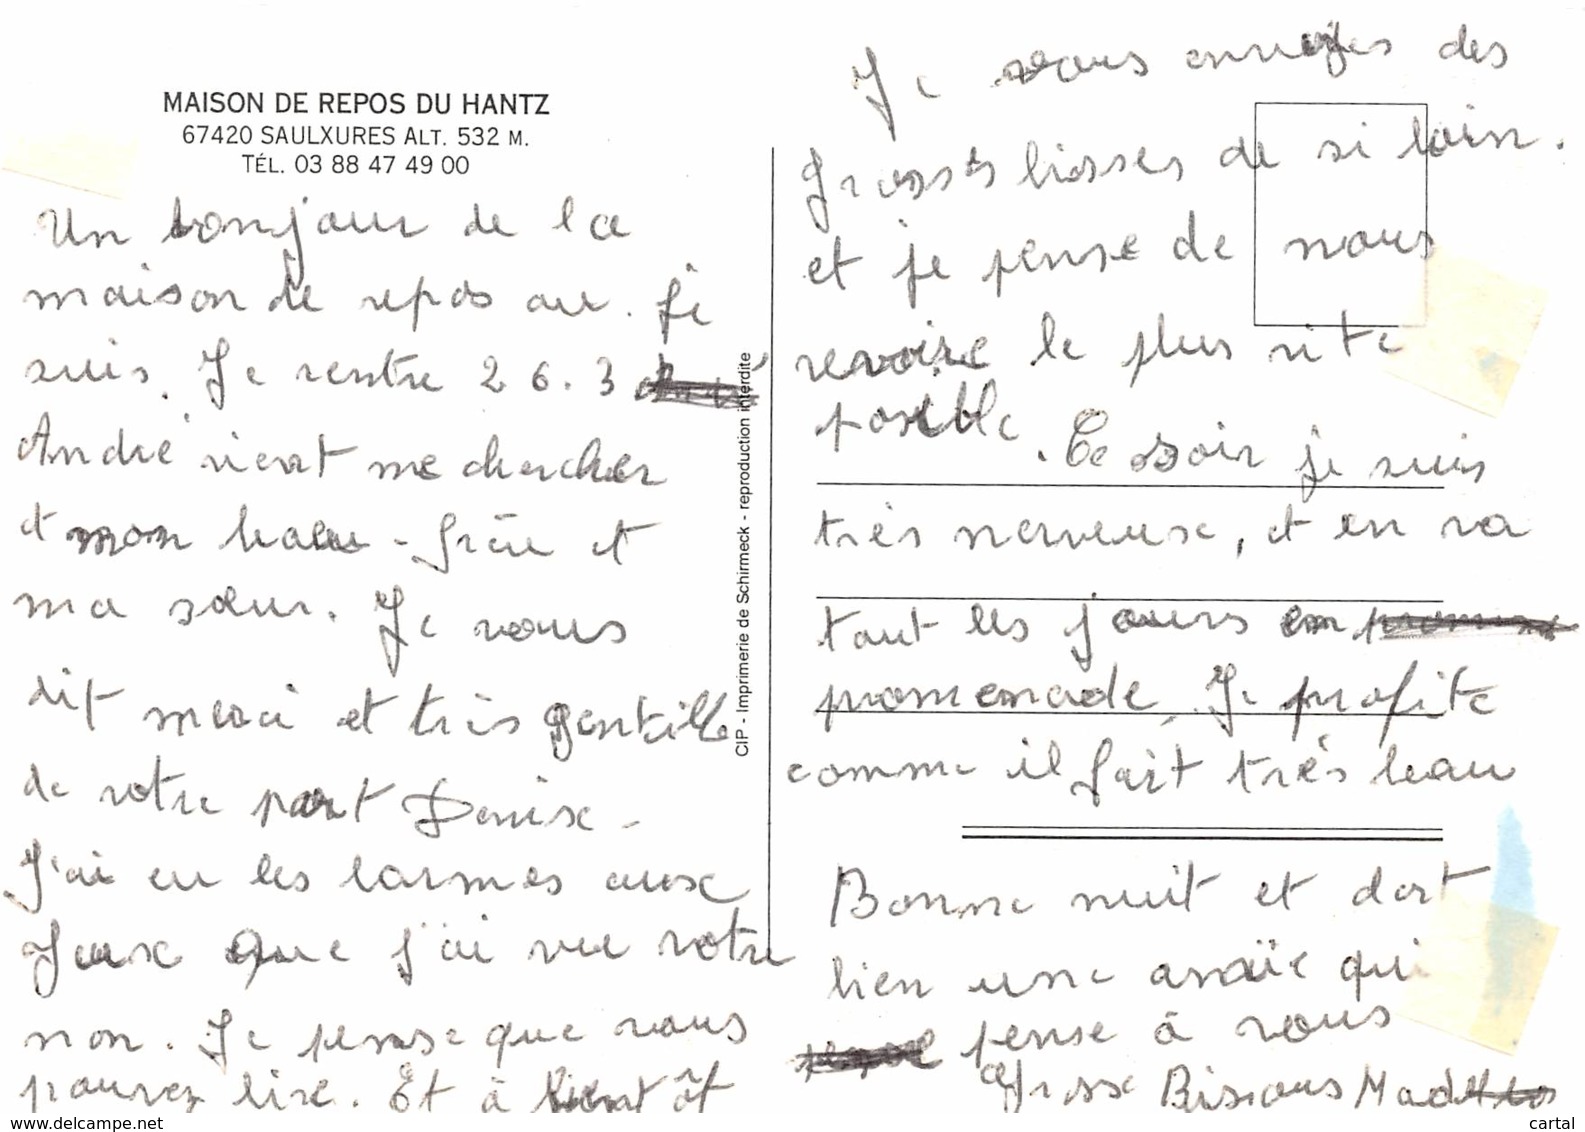 MAISON DE REPOS DU HANTZ
67420 SAULXURES ALT. 532 M.
TÉL. 03 88 47 49 00
Un bonjour de la
maison de repos ou. je
suis. Je rentre 26.3
André vient me chercher
et mon beau-frère et
ma sœur. Je vous
dit merci et très gentille
de votre part Denise-
J'ai eu les larmes aux
Yeux que j'ai vu votre
non. Je pense que vous
pouvez lire. Et à bientôt
CIP - Imprimerie de Schirmeck - reproduction interdite
Je vous envoyes des
grosses bisses de si loin.
et je pense de nous
revoire le plus vite
possible. Ce soir je suis
très nerveuse, et en va
tout les jours en
promenade. Je profite
comme il fait très beau
Bonne nuit et dort
bien une amïe qui
pense à vous
Grosse Bisious Mad
www.delcampe.net
cartal